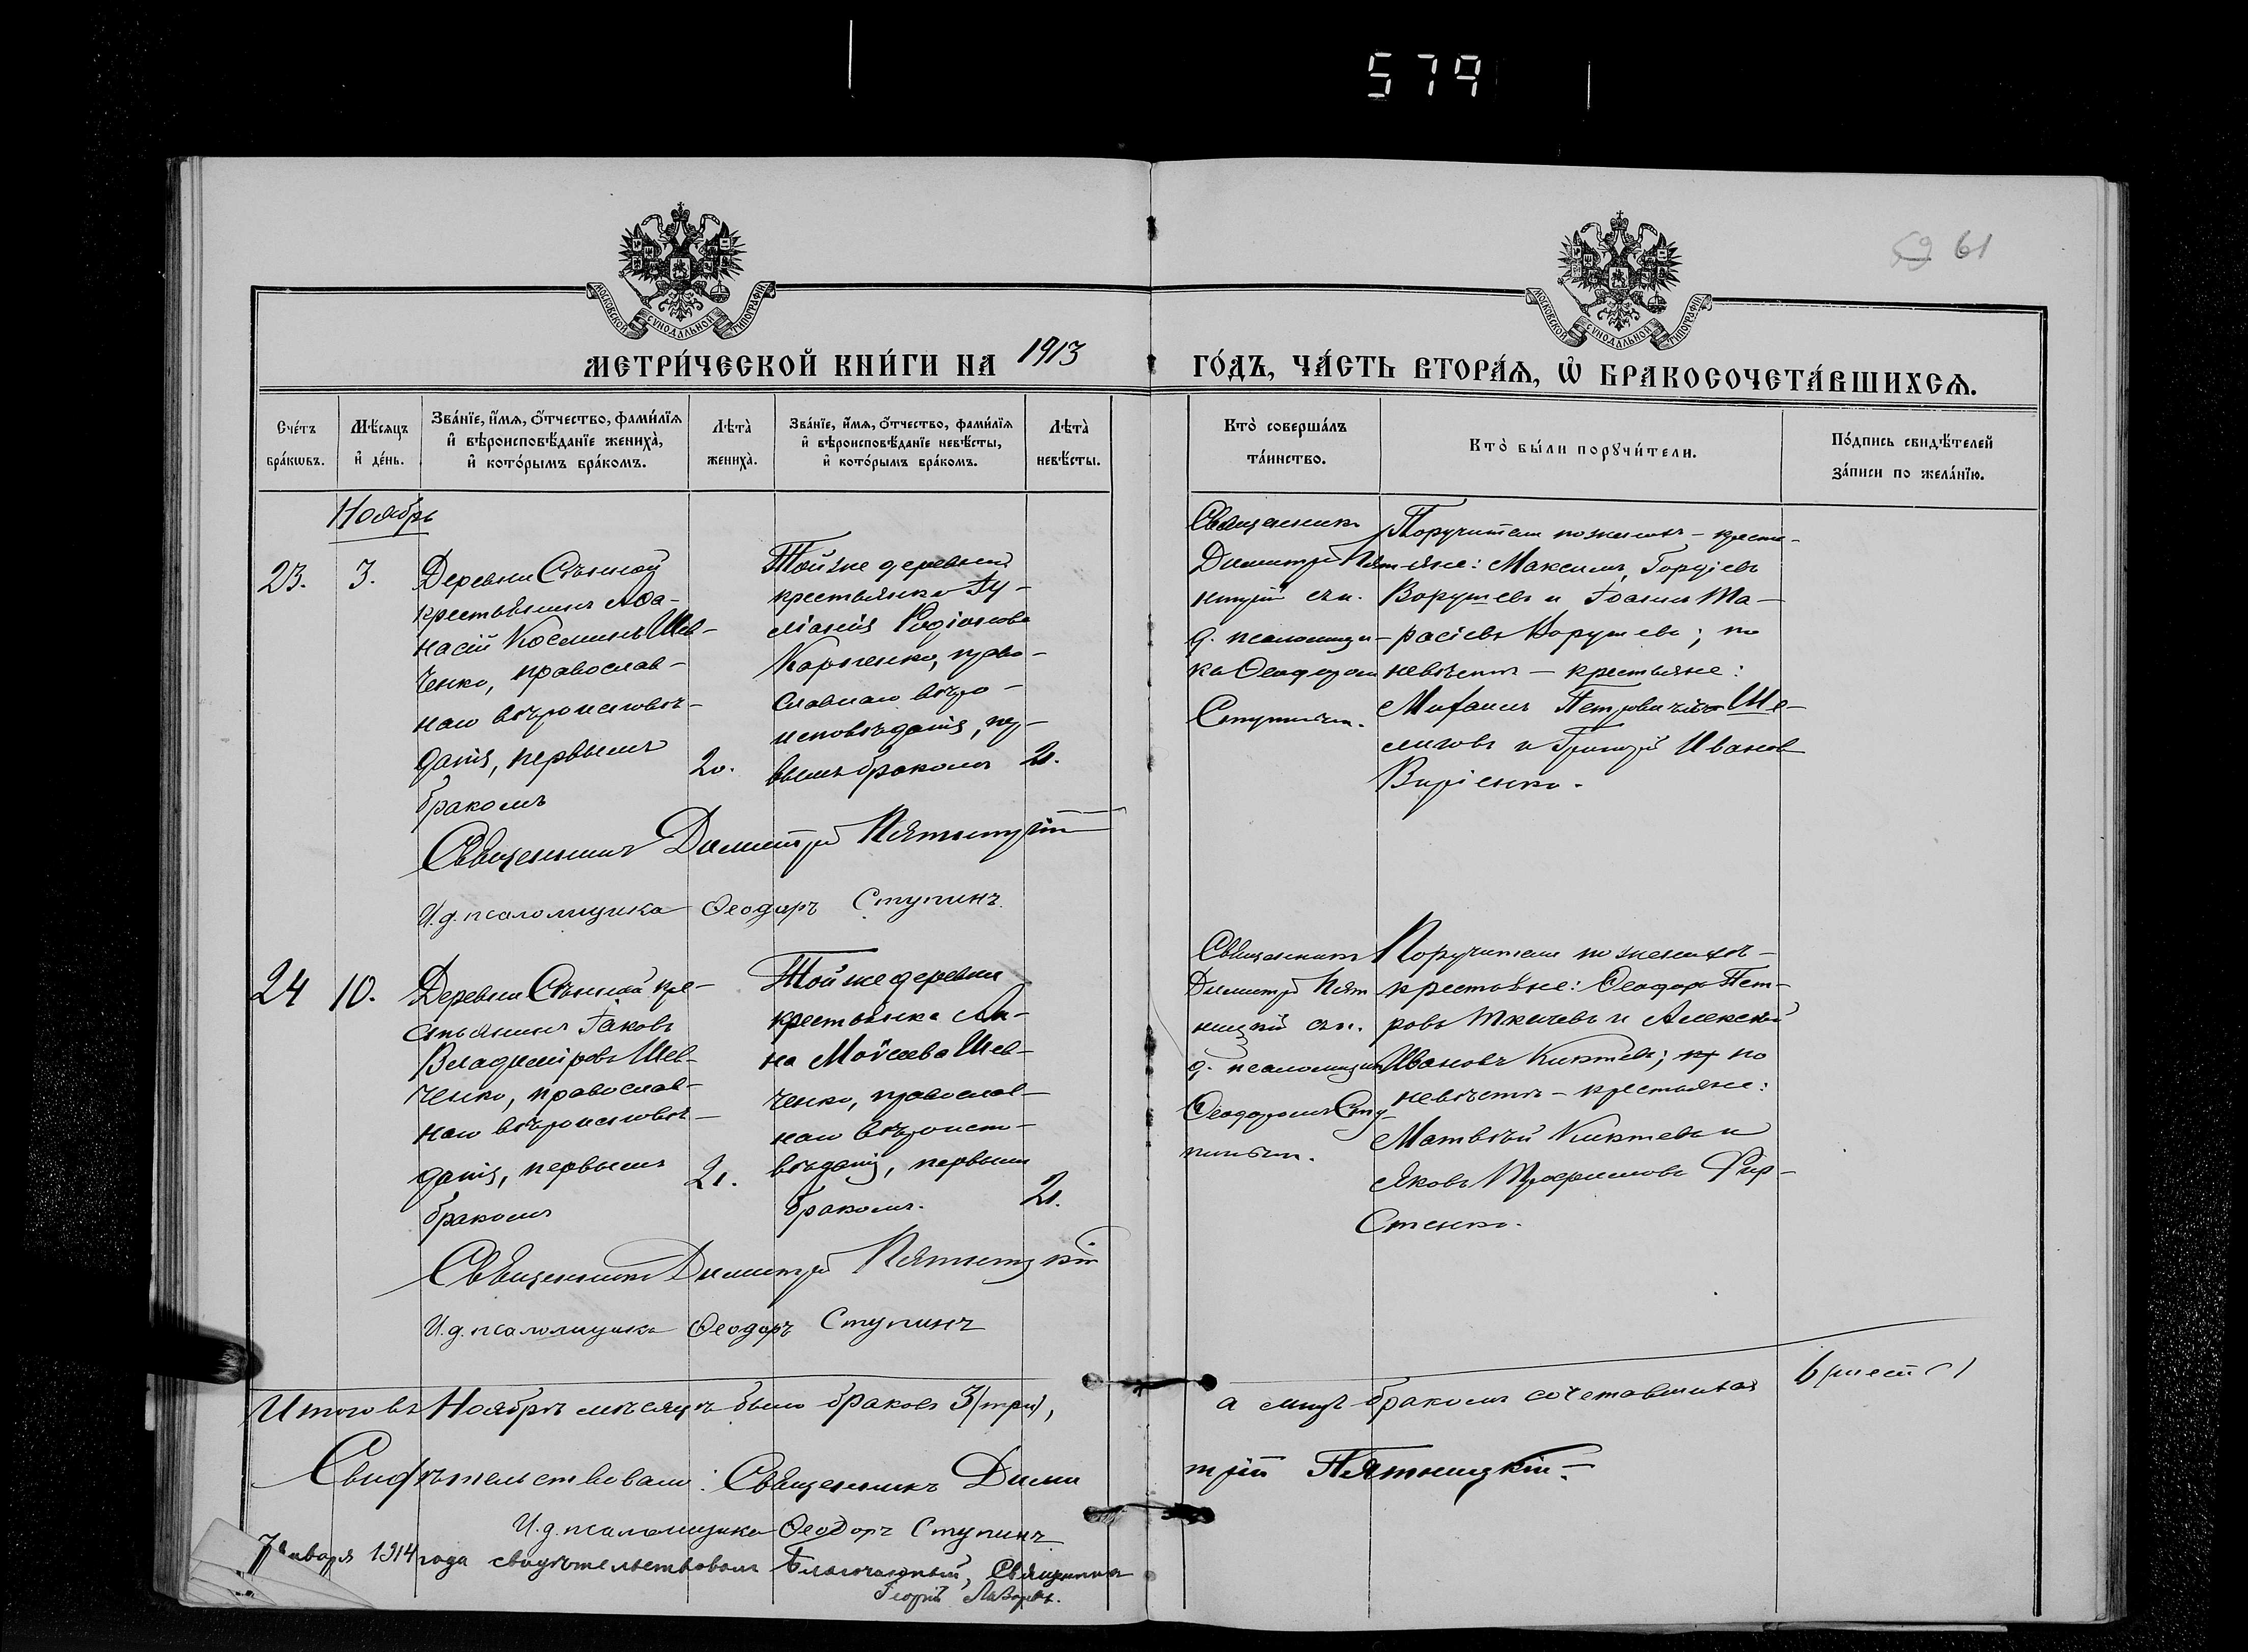 579
59 61
МОСКОВСКОЙ СѴНОДАЛЬНОЙ ТИПОГРАФІИ
МОСКОВСКОЙ СѴНОДАЛЬНОЙ ТИПОГРАФІИ
МЕТРИ́ЧЕСКОЙ КНИ́ГИ НА 1913 ГО́ДЪ, ЧА́СТЬ ВТОРА́Ѧ, Ѡ҆ БРАКОСОЧЕТА́ВШИХСѦ.
Сче́тъ
бра́кѡвъ.
Мѣ́сяцъ
и҆ де́нь.
Зва́нїе, и҆́мѧ, ѻ҆́тчество, фами́лїѧ
и҆ вѣроисповѣ́данїе жениха̀,
и҆ кото́рымъ бра́комъ.
Лѣта̀
жениха̀.
Зва́нїе, и҆́мѧ, ѻ҆́тчество, фами́лїѧ
и҆ вѣроисповѣ́данїе невѣ́сты,
и҆ кото́рымъ бра́комъ.
Лѣта̀
невѣ́сты.
Кто̀ соверша́лъ
та́инство.
Кто̀ бы́ли порꙋчи́тели.
По́дпись свидѣ́телей
за́писи по жела́нїю.
Ноябрь
23.
3.
Деревни Сѣнной
крестьянинъ Афа-
насій Косминъ Шев-
ченко, православ-
наго вѣроисповѣ-
данія, первымъ
бракомъ
20.
Той же деревни
крестьянка
Родіонова
право-
славнаго вѣро-
исповѣданія, пер-
вымъ бракомъ
21.
Священникъ
Димитрій Пят-
ницкій съ и.
д. псаломщи-
ка Ѳеодоромъ
Ступинымъ.
Поручители по женихѣ - кресть-
яне: Максимъ Гордіевъ
Ворушевъ и Іоаннъ Та-
расіевъ Ворушевъ; по
невѣстѣ - крестьяне:
Михаилъ Петровичъ
и Григорій Ивановъ
Священникъ Димитрій Пятницкій
И. д. псаломщика Ѳеодоръ Ступинъ.
24
10.
Деревни Сѣнной кре-
стьянинъ Іаковъ
Владиміровъ Шев-
ченко, православ-
наго вѣроисповѣ-
данія, первымъ
бракомъ
21.
Той же деревни
крестьянка Ан-
на Моѵсеева Шев-
ченко, православ-
наго вѣроиспо-
вѣданія, первымъ
бракомъ.
21.
Священникъ
Димитрій Пят
ницкій съ и.
д. псаломщика
Ѳеодоромъ Сту-
пинымъ.
Поручители по женихѣ -
крестьяне: Ѳеодоръ Пет-
ровъ Ткачевъ и Алексѣй
Ивановъ по
невѣстѣ - крестьяне:
Матвѣй и
Яковъ Трофимовъ Фир-
стенко.
Священникъ Димитрій Пятницкій
И. д. псаломщика Ѳеодоръ Ступинъ
Итого въ Ноябрѣ мѣсяцѣ было браковъ 3 (три), а лицъ бракомъ сочетавшихся 6 (шесть)
Свидѣтельствовали: Священникъ Димитрій Пятницкій
И. д. псаломщика Ѳеодоръ Ступинъ
Января 1914 года свидѣтельствовалъ Благочинный, Священникъ
Георгій